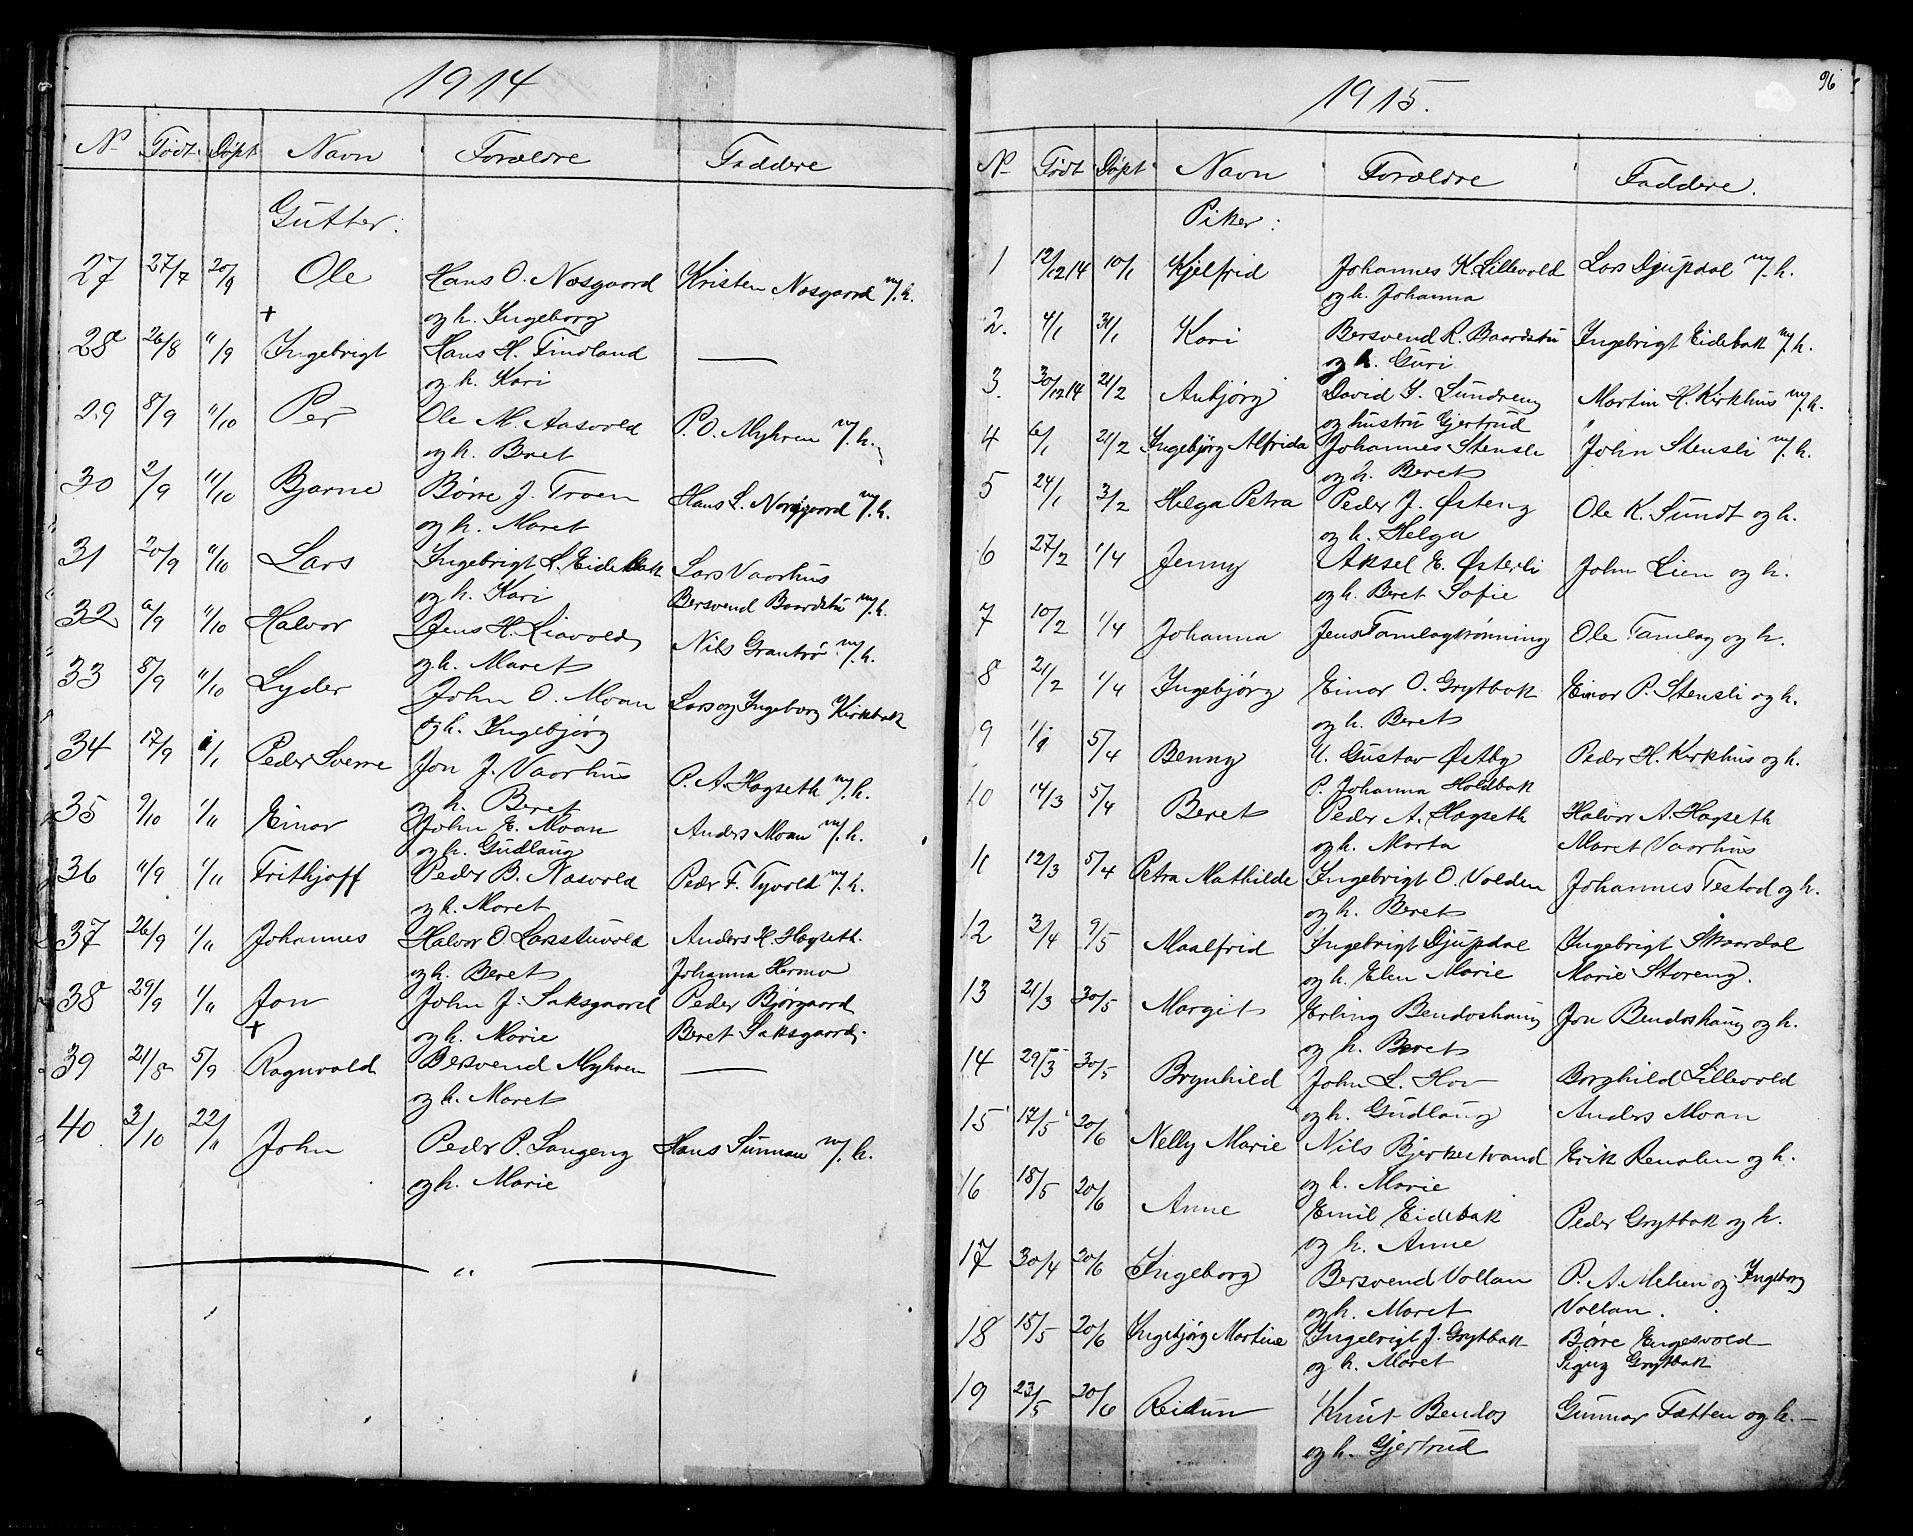 1914
No Født Døpt Navn Forældre Faddere
Gutter:
27 27/7 20/9 Ole Hans O. Næsgaard Kristen Næsgaard m/h.
og h. Ingeborg
+
28 26/8 "/9 Ingebrigt Hans H. Findland —
og h. Kari
29 8/9 "/10 Per Ole M. Aasvold P. O. Myhren m/h.
og h. Beret
30 2/9 "/10 Bjarne Børre J. Troen Hans L. m/h.
og h. Maret
31 20/9 "/10 Lars Ingebrigt L. Eidebak Lars Vaarhus
og h. Kari Bersvend Baardstu m/h.
32 6/9 "/10 Halvor Jens H. Liavold Nils Grantrø m/h.
og h. Maret
33 8/9 "/10 Lyder John O. Moan Lars og Ingeborg Kirkbak
og h. Ingebjørg
34 17/9 1/1 Peder Sverre Jon J. Vaarhus P. A. Hogseth m/h.
og h. Beret
35 9/10 1/11 Einar John E. Moan Anders Moan m/h.
og h. Gudlaug
36 "/9 1/11 Frithjoff Peder B. Aasvold Peder F. Tyvold m/h.
og h. Maret
37 26/9 1/11 Johannes Halvor O. Larsstuvold Anders H. Hogseth.
og h. Beret Johanna Hermo
38 29/9 1/11 Jon John J. Saksgaard Peder Bjørgaard
og h. Marie Beret Saksgaard.
+
39 21/8 5/9 Ragnvald Bersvend Myhren —
og h. Maret
40 3/10 22/11 John Peder P. Langeng Hans Sunnan m/h.
og h. Marie
"
1915.
96
No Født Døpt Navn Forældre Faddere.
Piker:
1 12/12 14 10/1 Kjelfrid Johannes K. Lillevold Lars Djupdal m/h.
og h. Johanna
2. 4/1 31/1 Kari Bersvend R. Baardstu Ingebrigt Eidebak m/h.
og h. Guri
3. 30/12 14 21/2 Anbjørg David J. Sundreng Martin H. Kirkhus m/h.
og hustru Gjertrud
4 6/1 21/2 Ingebjørg Alfrida Johannes Stensli John Stensli m/h.
og h. Beret
5 24/1 3/2 Helga Petra Peder J. Østeng Ole K. Sundt og h.
og h. Helga
6 27/2 1/4 Jenny Aksel E. Østerli John Lien og h.
og h. Beret Sofie
7 10/2 1/4 Johanna Jens Tamlagtrønning Ole Tamlag og h.
8 21/2 1/4 Ingebjørg Einar O. Grytbak Einar P. Stensli og h.
og h. Beret
9 5/4 Benny U. Gustav Østby Peder H. Kirkhus og h.
P. Johanna Holdbak
10 14/3 5/4 Beret Peder A. Hogseth Halvor A. Hogseth
og h. Marta Maret Vaarhus
11 12/3 5/4 Petra Mathilde Ingebrigt O. Volden Johannes Testad og h.
og h. Beret
12 3/4 9/5 Maalfrid Ingebrigt Djupdal Ingebrigt Skaardal
og h. Elen Marie Marie Storeng.
13 21/3 30/5 Margit Erling Bendoshaug Jon Bendoshaug og h.
og h. Beret
14 29/3 30/5 Brynhild John L. Hov Borghild Lillevold
og h. Gudlaug Anders Moan
15 17/5 20/6 Nelly Marie Nils Bjerkestrand Erik Renolen og h.
og h. Marie
16 18/5 20/6 Anne Emil Eidebak Peder Grytbak og h.
og h. Anne
17 30/4 20/6 Ingeborg Bersvend Vollan P. A. Melien og Ingeborg
og h. Maret Vollan.
18 15/5 20/6 Ingebjørg Martine Ingebrigt J. Grytbak Børre Engesvold
og h. Maret Signy Grytbak
19 23/5 20/6 Reidun Knut Bendos Gunnar Fætten og h. —
og h. Gjertrud